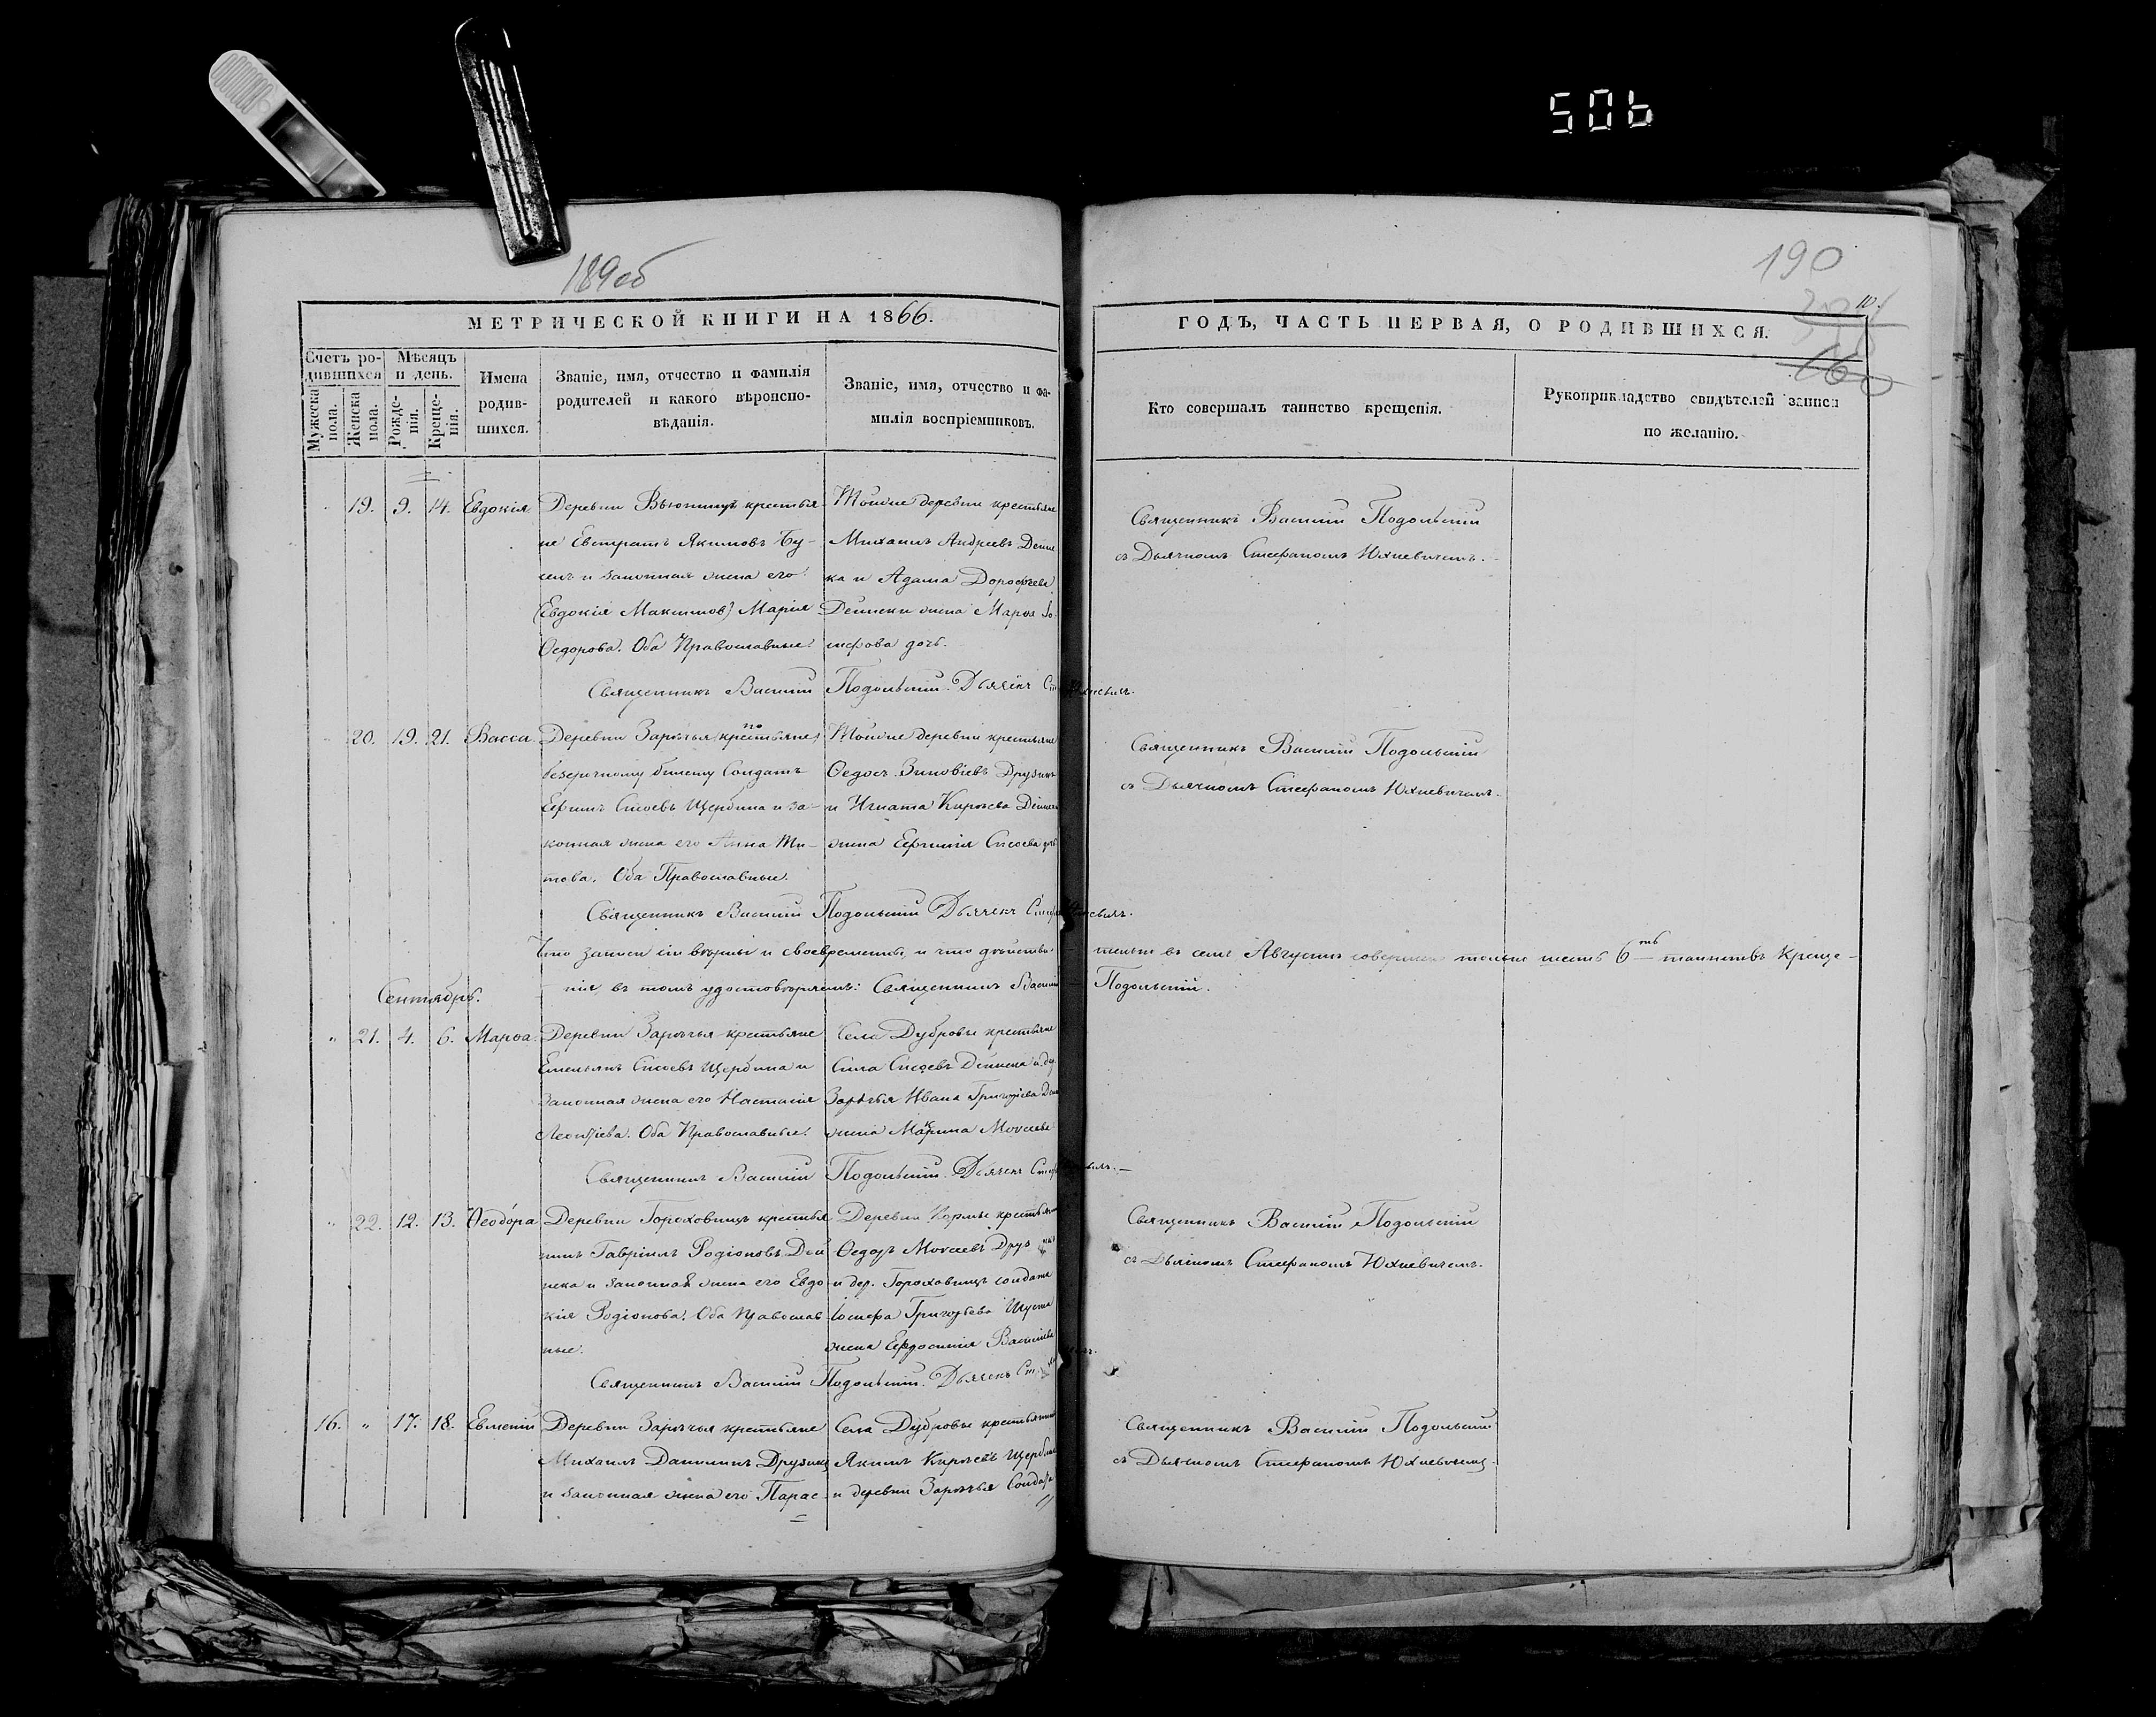 506
189об
190
10.
160
МЕТРИЧЕСКОЙ КНИГИ НА 1866.
ГОДЪ, ЧАСТЬ ПЕРВАЯ, О РОДИВШИХСЯ.
Счетъ родившихся
Мужеска пола.
Женска пола.
Мѣсяцъ и день.
Рожденія.
Крещенія.
Имена родившихся.
Званіе, имя, отчество и фамилія
родителей и какого вѣроиспо-
вѣданія.
Званіе, имя, отчество и фа-
милія воспріемниковъ.
Кто совершалъ таинство крещенія.
Рукоприкладство свидѣтелей записи
по желанію.
19. 9. 14. Евдокія
Деревни Вьюнищъ крестья-
не Евстратъ Якимовъ Бу-
сел и законная жена его
(Евдокія Максимов) Марія
Ѳедорова. Оба Православные.
Тойже деревни крестьяне
Михаилъ Андреевъ Дейне
ка и Адама Дорофѣева
Дейнеки жена Марѳа Іо-
сифова дочь.
Священникъ Василій Подольскій
съ Дьячкомъ Стефаномъ Юхневичемъ.
Священникъ Василій Подольскій. Дьячекъ
20. 19. 21. Васса
Деревни Зарѣчья (крестьяне) по
безсрочному билету Солдатъ
Ефимъ Сысоевъ Щербина и за-
конная жена его Анна Ти-
това. Оба Православные.
Тойже деревни крестьяне
Ѳедосъ Зиновіевъ Друзикъ
и Игната Кирѣева
жена Ефимія Сысоева
Священникъ Василій Подольскій
съ Дьячкомъ Стефаномъ Юхневичемъ.
Священникъ Василій Подольскій Дьячекъ
Что записи сіи вѣрны и своевременны, и что дѣйстви-
тельно въ семъ Августѣ совершено только шесть 6ть таинствъ Креще-
нія, въ томъ удостовѣряемъ: Священникъ Василій Подольскій.
Сентябрь.
" 21. 4. 6. Марѳа
Деревни Зарѣчья крестьяне
Емельянъ Сысоевъ Щербина и
законная жена его Настасія
Леонтіева. Оба Православные.
Села Дубровы крестьяне
Сила Сысоевъ Дейнека и дер.
Зарѣчья Ивана Григорьева
жена Марина Моисеева
Священникъ Василій Подольскій. Дьячекъ
" 22. 12. 13. Ѳеодора
Деревни Гороховищъ крестья
нинъ Гавріилъ Родіоновъ Дей
нека и законная жена его Евдо
кія Родіонова. Оба Православ
ные.
Деревни Кормы
Ѳедоръ Моисеевъ
и дер. Гороховищъ солдата
Іосифа Григорьева
жена Ефросинія
Священникъ Василій Подольскій
съ Дьячкомъ Стефаномъ Юхневичемъ.
Священникъ Василій Подольскій. Дьячекъ
16. " 17. 18. Евмений
Деревни Зарѣчья крестьяне
Михаилъ Даниловъ Друзикъ
и законная жена его Парас-
Села Дубровы
Якимъ Кирѣевъ
и деревни Зарѣчья Солдата
Священникъ Василій Подольскій
съ Дьячкомъ Стефаномъ Юхневичемъ.